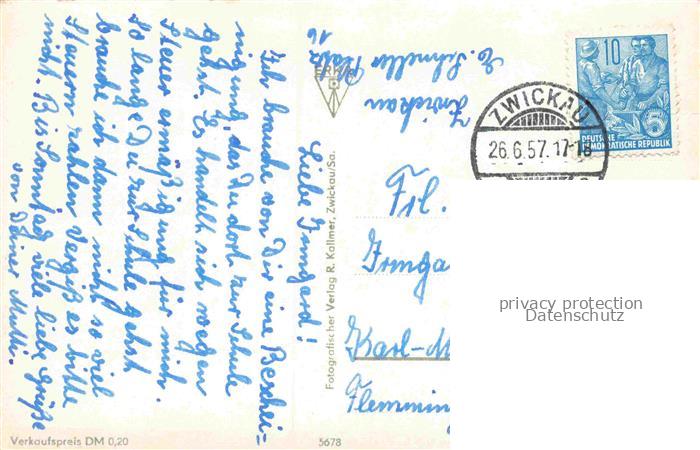 Liebe Irmgard!
Ich brauche von Dir eine Beschei-
nigung, das Du dort zur Schule
gehst. Es handelt sich wegen
Steuer ermäßigung für mich.
So lange Du zur Schule gehst
brauche ich dann nicht so viel
Steuern zahlen. Vergiß es bitte
nicht. Bis Sonntag viele liebe Grüße
von Deiner Mutti.
Verkaufspreis DM 0,20
5678
Fotografischer Verlag R. Kallmer, Zwickau/Sa.
ERKA
E. Schneller Platz
16
Zwickau
ZWICKAU
26.6.57.17-18
10
DEUTSCHE
DEMOKRATISCHE REPUBLIK
5
Frl.
Irmga
Karl-M
Flemmin
privacy protection
Datenschutz